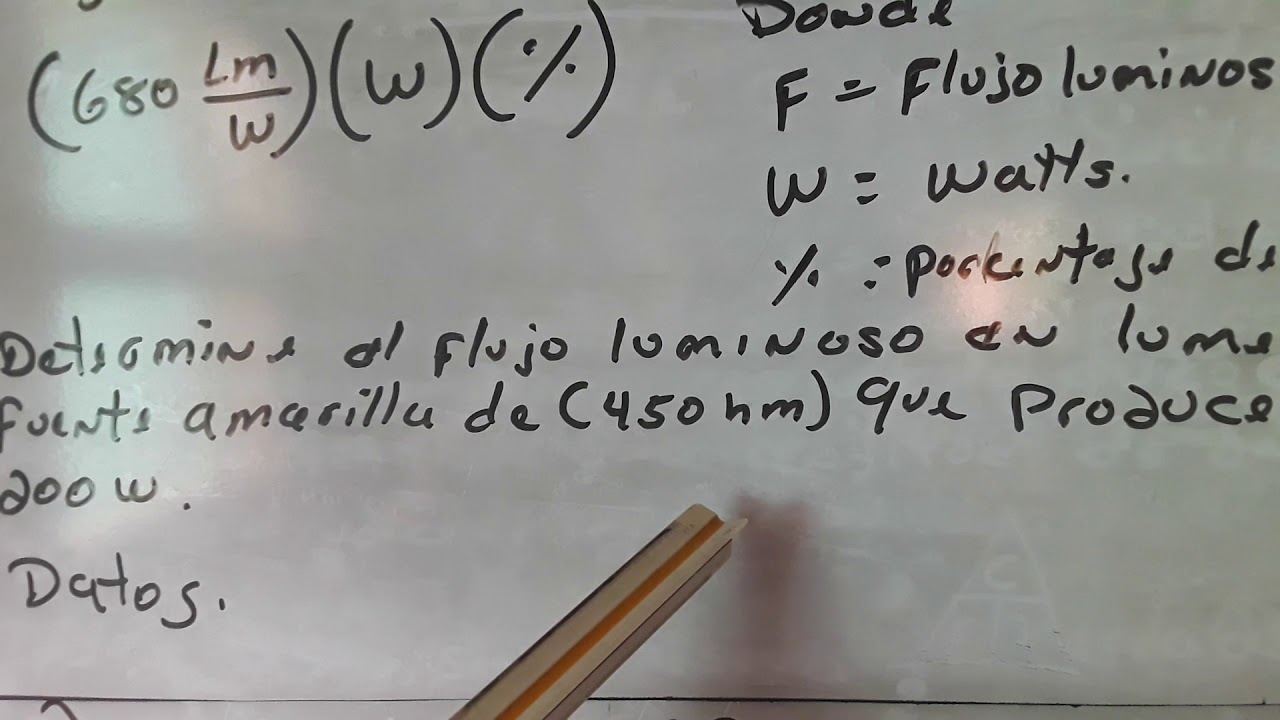 (680 Lm/W)(W)(%)
Donde
F = Flujo luminos
W = Watts.
% : Porcentaje de
Determine el Flujo luminoso en lume
fuente amarilla de (450 nm) que Produce
200 W.
Datos.